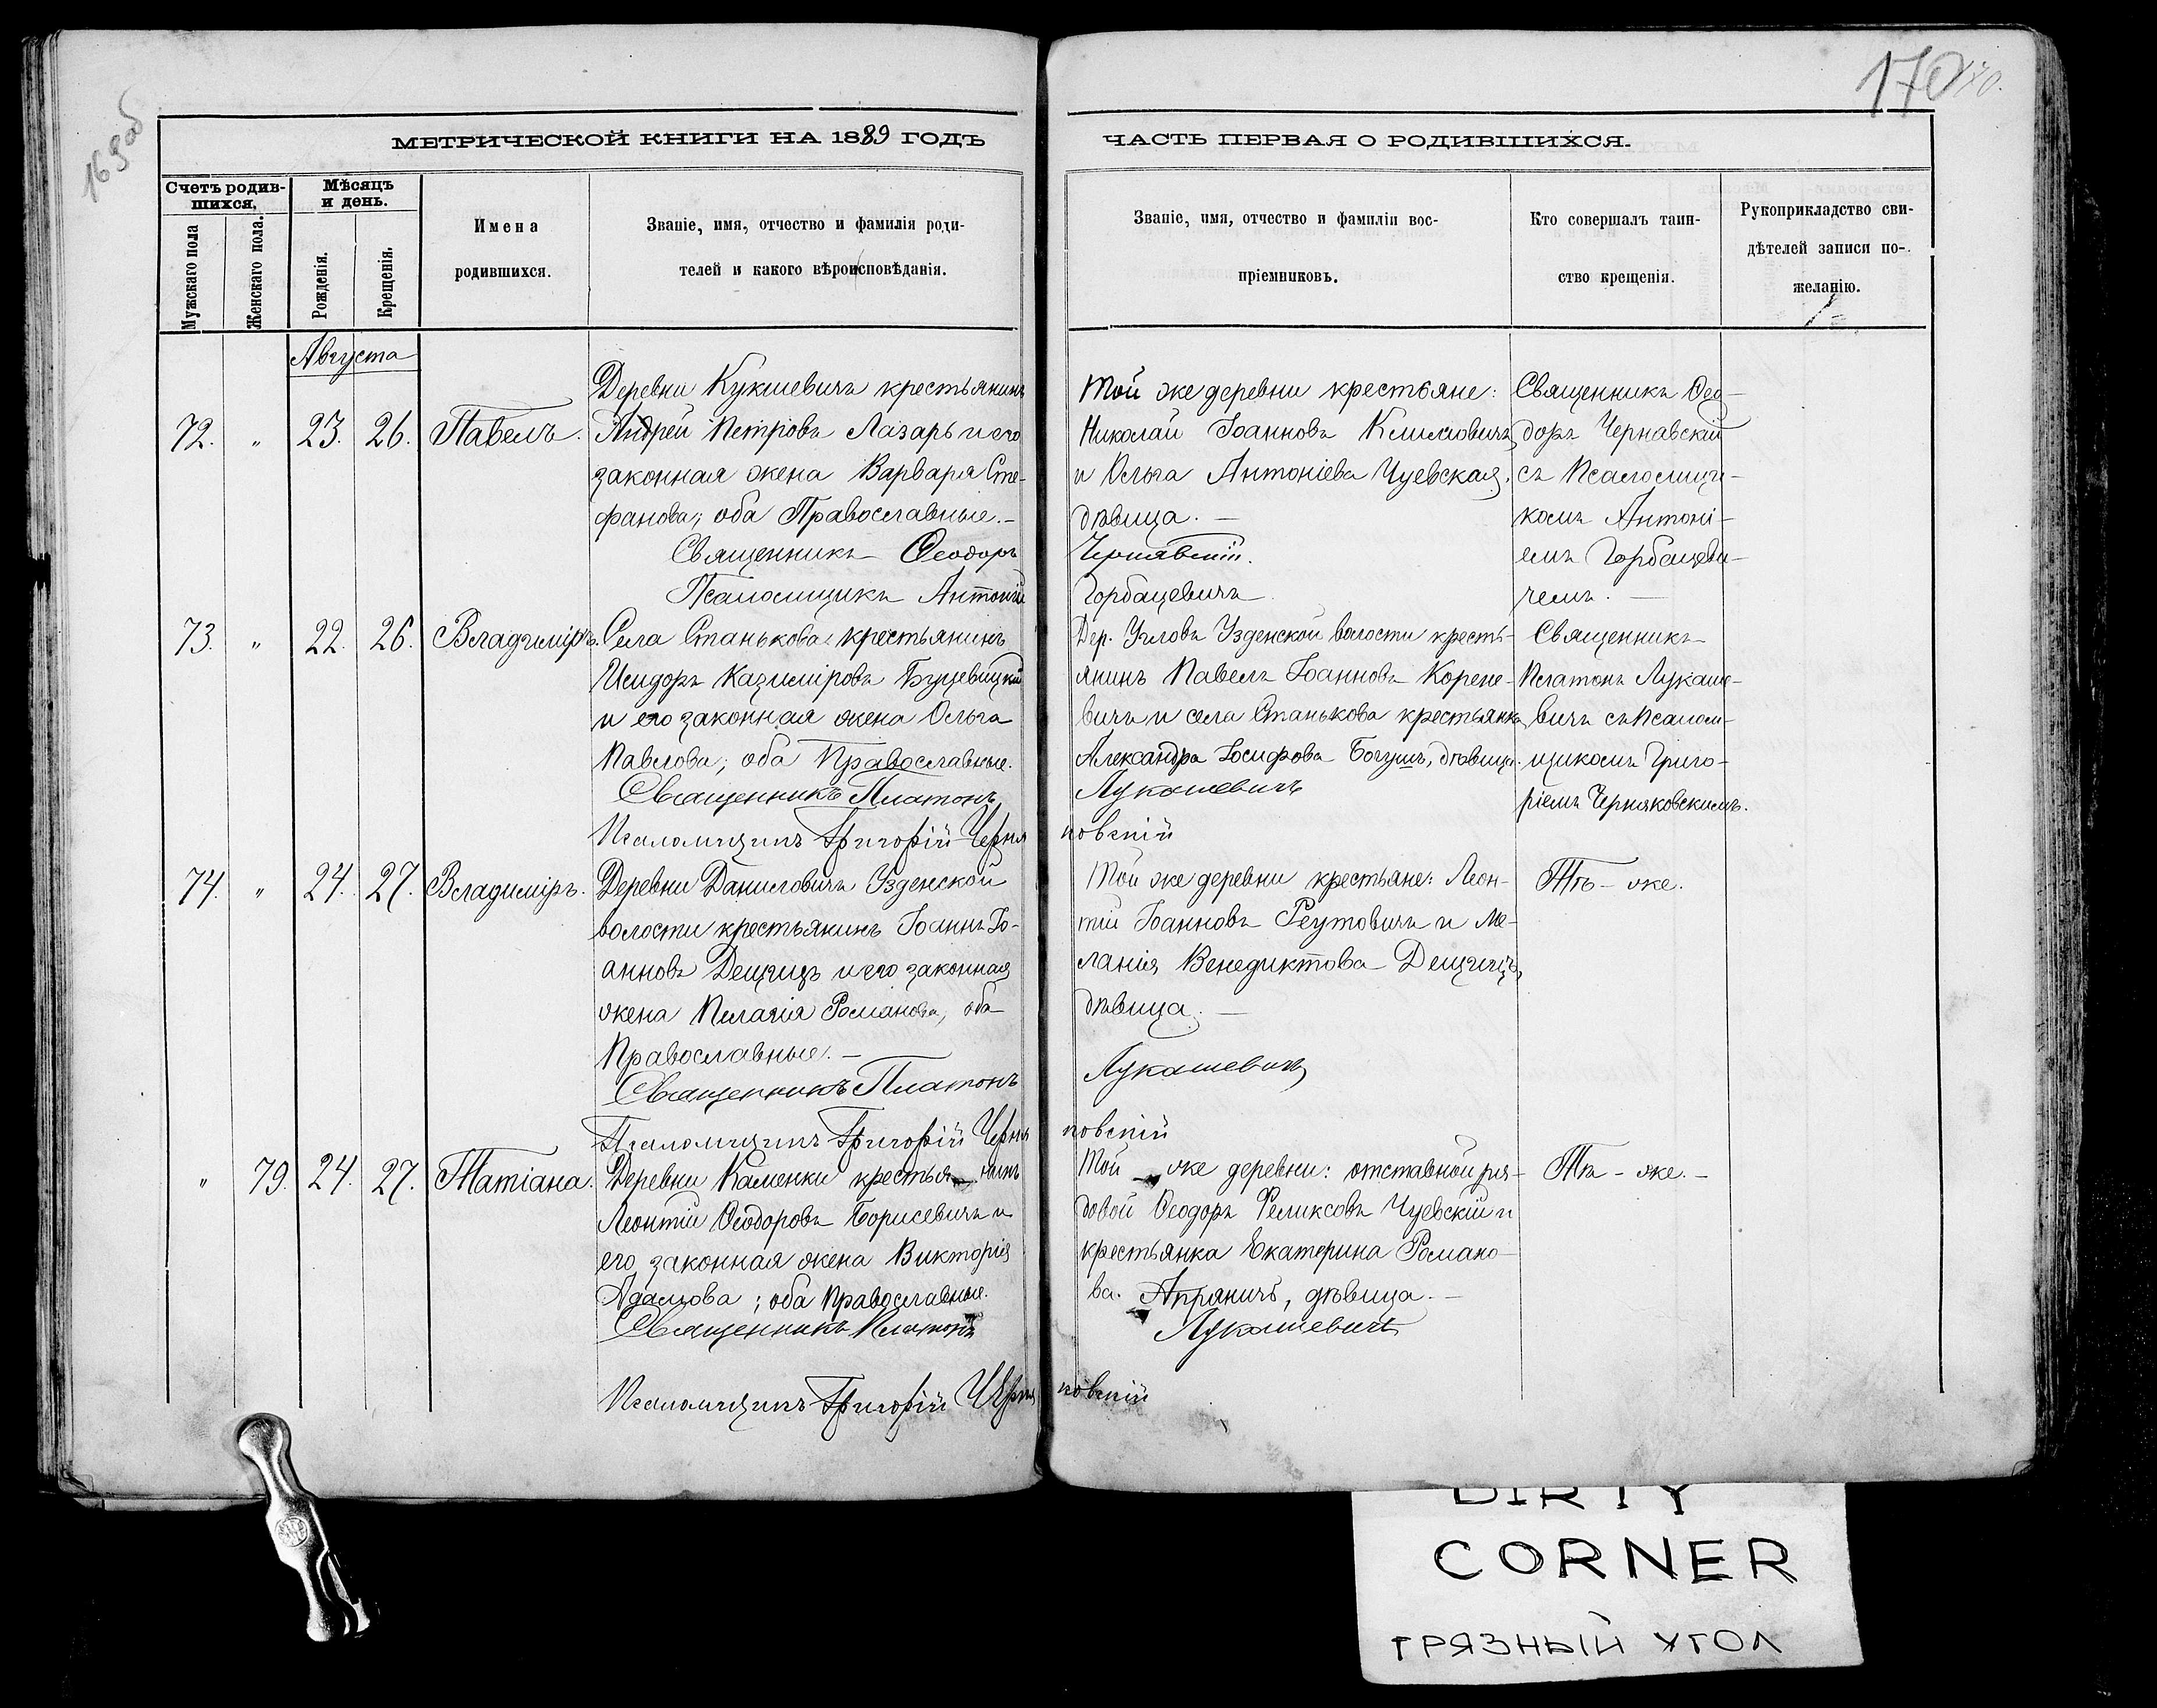 169об
170
170.
МЕТРИЧЕСКОЙ КНИГИ НА 1889 ГОДЪ
ЧАСТЬ ПЕРВАЯ О РОДИВШИХСЯ.
Счетъ родив-
шихся,
Мужскаго пола
Женскаго пола.
Мѣсяцъ
и день.
Рожденія.
Крещенія.
Имена
родившихся.
Званіе, имя, отчество и фамилія роди-
телей и какого вѣроисповѣданія.
Званіе, имя, отчество и фамиліи вос-
пріемниковъ.
Кто совершалъ таин-
ство крещенія.
Рукоприкладство сви-
дѣтелей записи по-
желанію.
Августа
72. " 23. 26. Павелъ.
Деревни Кукшевичъ крестьянинъ
Андрей Петровъ Лазарь и его
законная жена Варвара Сте-
фанова; оба Православные.—
Священникъ Ѳеодоръ
Псаломщикъ Антоній
Той же деревни крестьяне:
Николай Іоанновъ Климовичъ
и Ольга Антоніева Чуевская,
дѣвица.—
Чернявскій.
Горбацевичъ
Священникъ Ѳео-
доръ Чернавскій
съ Псаломщи-
комъ Антоні-
емъ Горбацеви-
чемъ.—
73. " 22. 26. Владиміръ.
Села Станькова крестьянинъ
Исидоръ Казиміровъ Буцевицкій
и его законная жена Ольга
Павлова; оба Православные.
Священникъ Платонъ
Псаломщикъ Григорій Черня
Дер. Угловъ Узденской волости кресть-
янинъ Павелъ Іоанновъ Корене-
вичъ и села Станькова крестьянка
Александра Іосифова Богушъ, дѣвица.
Лукашевичъ
ковскій
Священникъ
Платонъ Лукаше-
вичъ съ Псалом-
щикомъ Григо-
ріемъ Черняковскимъ.
74. " 24. 27. Владиміръ.
Деревни Даниловичъ Узденской
волости крестьянинъ Іоаннъ Іо-
анновъ Дещицъ и его законная
жена Пелагія Романова, оба
Православные.—
Священникъ Платонъ
Псаломщикъ Григорій Черня
Той же деревни крестьяне: Леон-
тій Іоанновъ Реутовичъ и Ме-
ланія Венедиктова Дещицъ,
дѣвица.—
Лукашевичъ
ковскій
Тѣ-же.
" 79. 24. 27. Татіана.
Деревни Каменки крестья нинъ
Леонтій Ѳеодоровъ Борисевичъ и
его законная жена Викторія
Адамова; оба Православные.
Священникъ Платонъ
Псаломщикъ Григорій Черня
Той же деревни: отставной ря-
довой Ѳеодоръ Феликсовъ Чуевскій и
крестьянка Екатерина Романо-
ва. дѣвица.—
Лукашевичъ
ковскій
Тѣ-же.—
DIRTY
CORNER
ГРЯЗНЫЙ УГОЛ